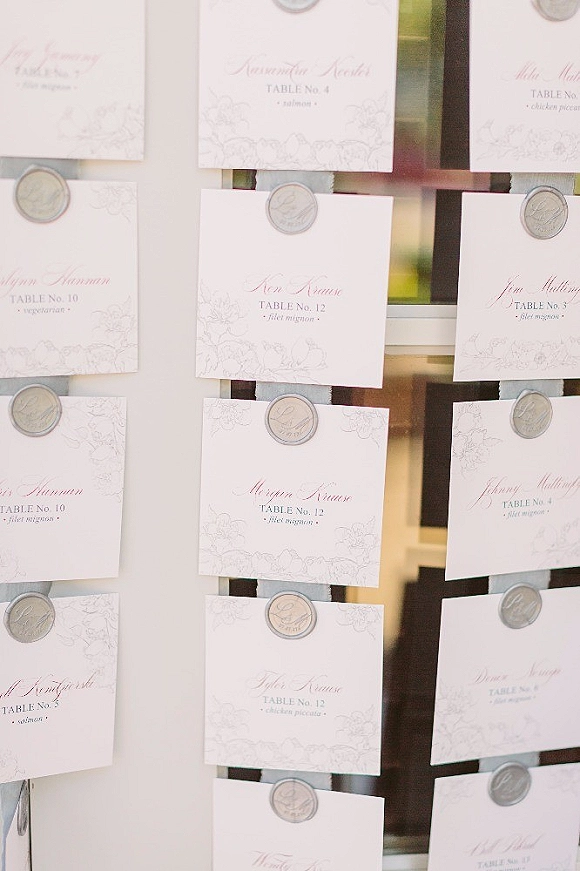 TABLE No. 7
• filet mignon •
Kassandra Koester
TABLE No. 4
• salmon •
TABLE No.
• chicken piccata
Hannan
TABLE No. 10
• vegetarian •
Ken Krause
TABLE No. 12
• filet mignon •
Jim
TABLE No. 3
• filet mignon •
Hannan
TABLE No. 10
• filet mignon •
Morgan Krause
TABLE No. 12
• filet mignon •
Johnny
TABLE No. 4
• filet mignon •
TABLE No. 5
• salmon •
Tyler Krause
TABLE No. 12
• chicken piccata •
TABLE No.
• filet mignon •
Wendy
Bill
TABLE No. 13